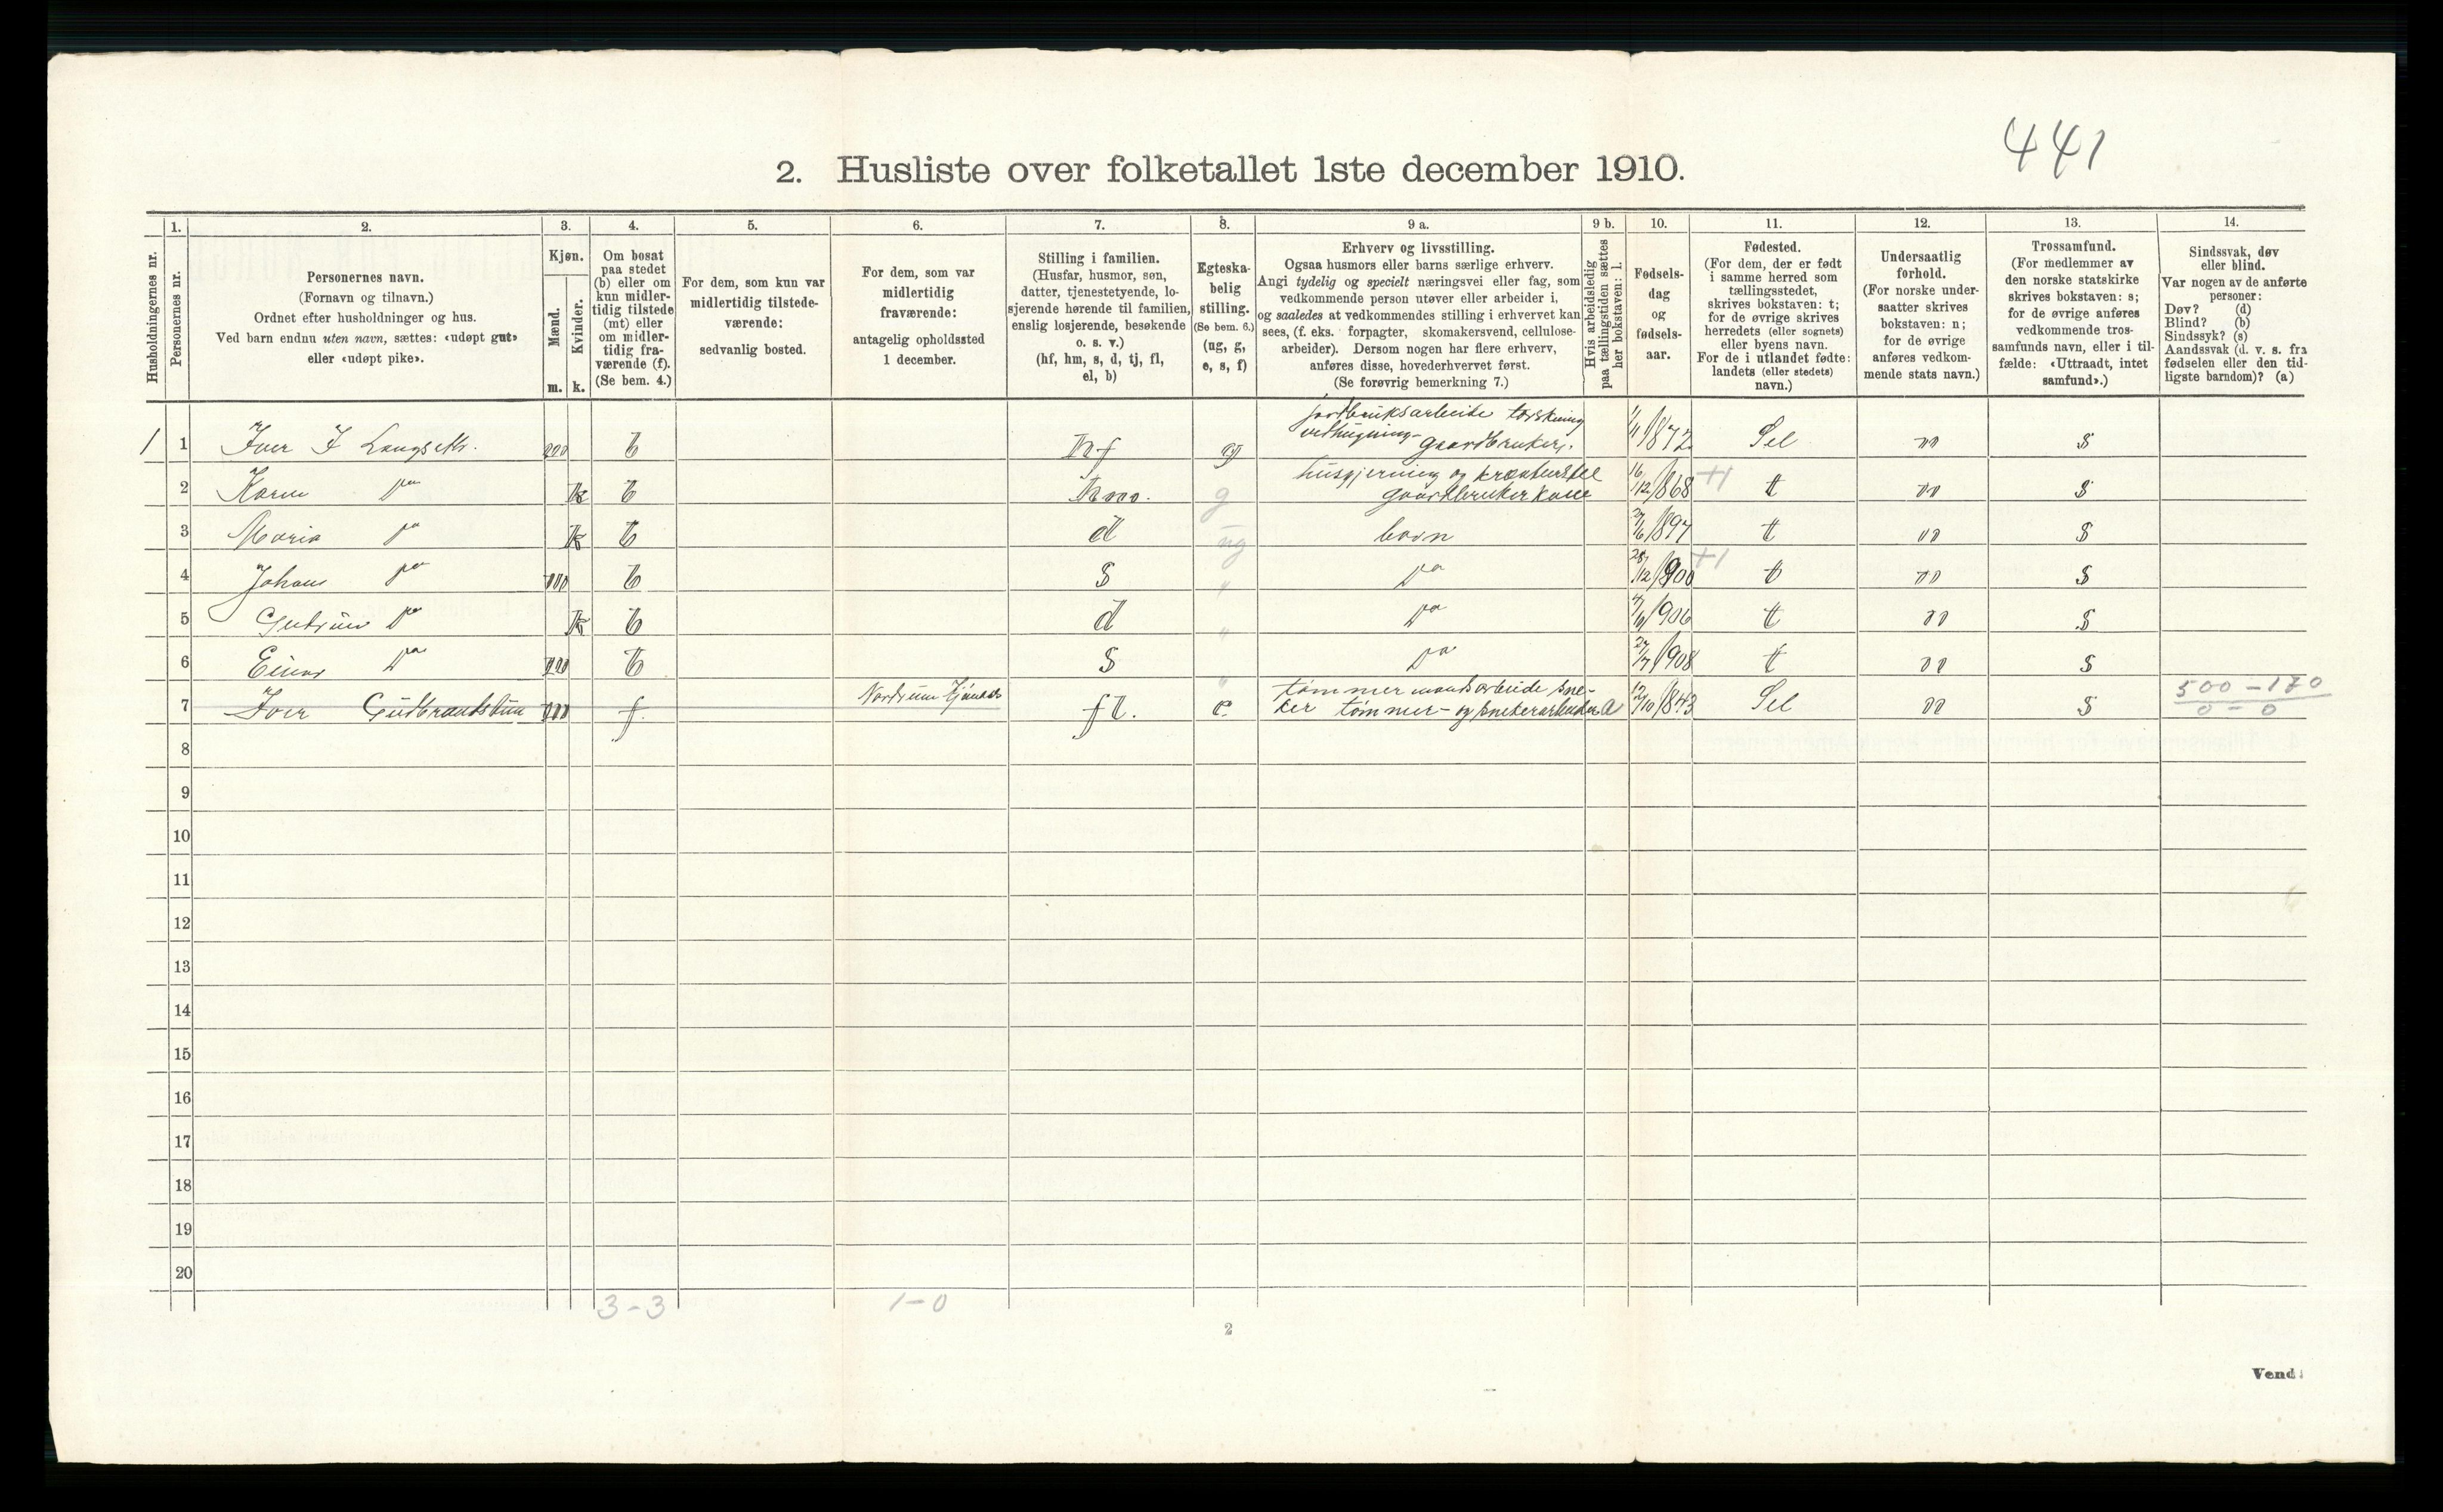 441
2. Husliste over folketallet 1ste december 1910.
Husholdningernes nr.
1.
Personernes nr.
2.
Personernes navn.
(Fornavn og tilnavn.)
Ordnet efter husholdninger og hus.
Ved barn endnu uten navn, sættes: «udøpt gut»
eller «udøpt pike».
3.
Kjøn.
Mænd.
Kvinder.
m. k.
4.
Om bosat
paa stedet
(b) eller om
kun midler-
tidig tilstede
(mt) eller
om midler-
tidig fra-
værende (f).
(Se bem. 4.)
5.
For dem, som kun var
midlertidig tilstede-
værende:
sedvanlig bosted.
6.
For dem, som var
midlertidig
fraværende:
antagelig opholdssted
1 december.
7.
Stilling i familien.
(Husfar, husmor, søn,
datter, tjenestetyende, lo-
sjerende hørende til familien,
enslig losjerende, besøkende
o. s. v.)
(hf, hm, s, d, tj, fl,
el, b)
8.
Egteska-
belig
stilling.
(Se bem. 6.)
(ug, g,
e, s, f)
9 a.
Erhverv og livsstilling.
Ogsaa husmors eller barns særlige erhverv.
Angi tydelig og specielt næringsvei eller fag, som
vedkommende person utøver eller arbeider i,
og saaledes at vedkommendes stilling i erhvervet kan
sees, (f. eks. forpagter, skomakersvend, cellulose-
arbeider). Dersom nogen har flere erhverv,
anføres disse, hovederhvervet først.
(Se forøvrig bemerkning 7.)
9 b.
Hvis arbeidsledig
paa tællingstiden sættes
her bokstaven: l.
10.
Fødsels-
dag
og
fødsels-
aar.
11.
Fødested.
(For dem, der er født
i samme herred som
tællingsstedet,
skrives bokstaven: t;
for de øvrige skrives
herredets (eller sognets)
eller byens navn.
For de i utlandet fødte:
landets (eller stedets)
navn.)
12.
Undersaatlig
forhold.
(For norske under-
saatter skrives
bokstaven: n;
for de øvrige
anføres vedkom-
mende stats navn.)
13.
Trossamfund.
(For medlemmer av
den norske statskirke
skrives bokstaven: s;
for de øvrige anføres
vedkommende tros-
samfunds navn, eller i til-
fælde: «Uttraadt, intet
samfund».)
14.
Sindssvak, døv
eller blind.
Var nogen av de anførte
personer:
Døv? (d)
Blind? (b)
Sindssyk? (s)
Aandssvak (d. v. s. fra
fødselen eller den tid-
ligste barndom)? (a)
jordbruksarbeide torskning
vedhugning
1 1 Iver I Langseth. m b hf g gaardbruker. 1/11 1872 Sel n s
husgjerning og kræaturstel
2 Karen do k b hm. g gaardbruker kone 16/12 1868 +1 t n s
3 Maria do k b d ug barn 27/6 1897 t n s
4 Johans do m b s " do 28/12 1900 +1 t n s
5 Gudrun do k b d " do 4/6 1906 t n s
6 Einar do m b s " do 27/7 1908 t n s
tømmermandsarbeide sne-
7 Iver Gudbrandsbun m f fl. e. ker tømmer- og snekerarbeider a 12/10 1843 Sel n s 500-1
0-0
8
9
10
11
12
13
14
15
16
17
18
19
20
3-3 1-0
2
Vend!